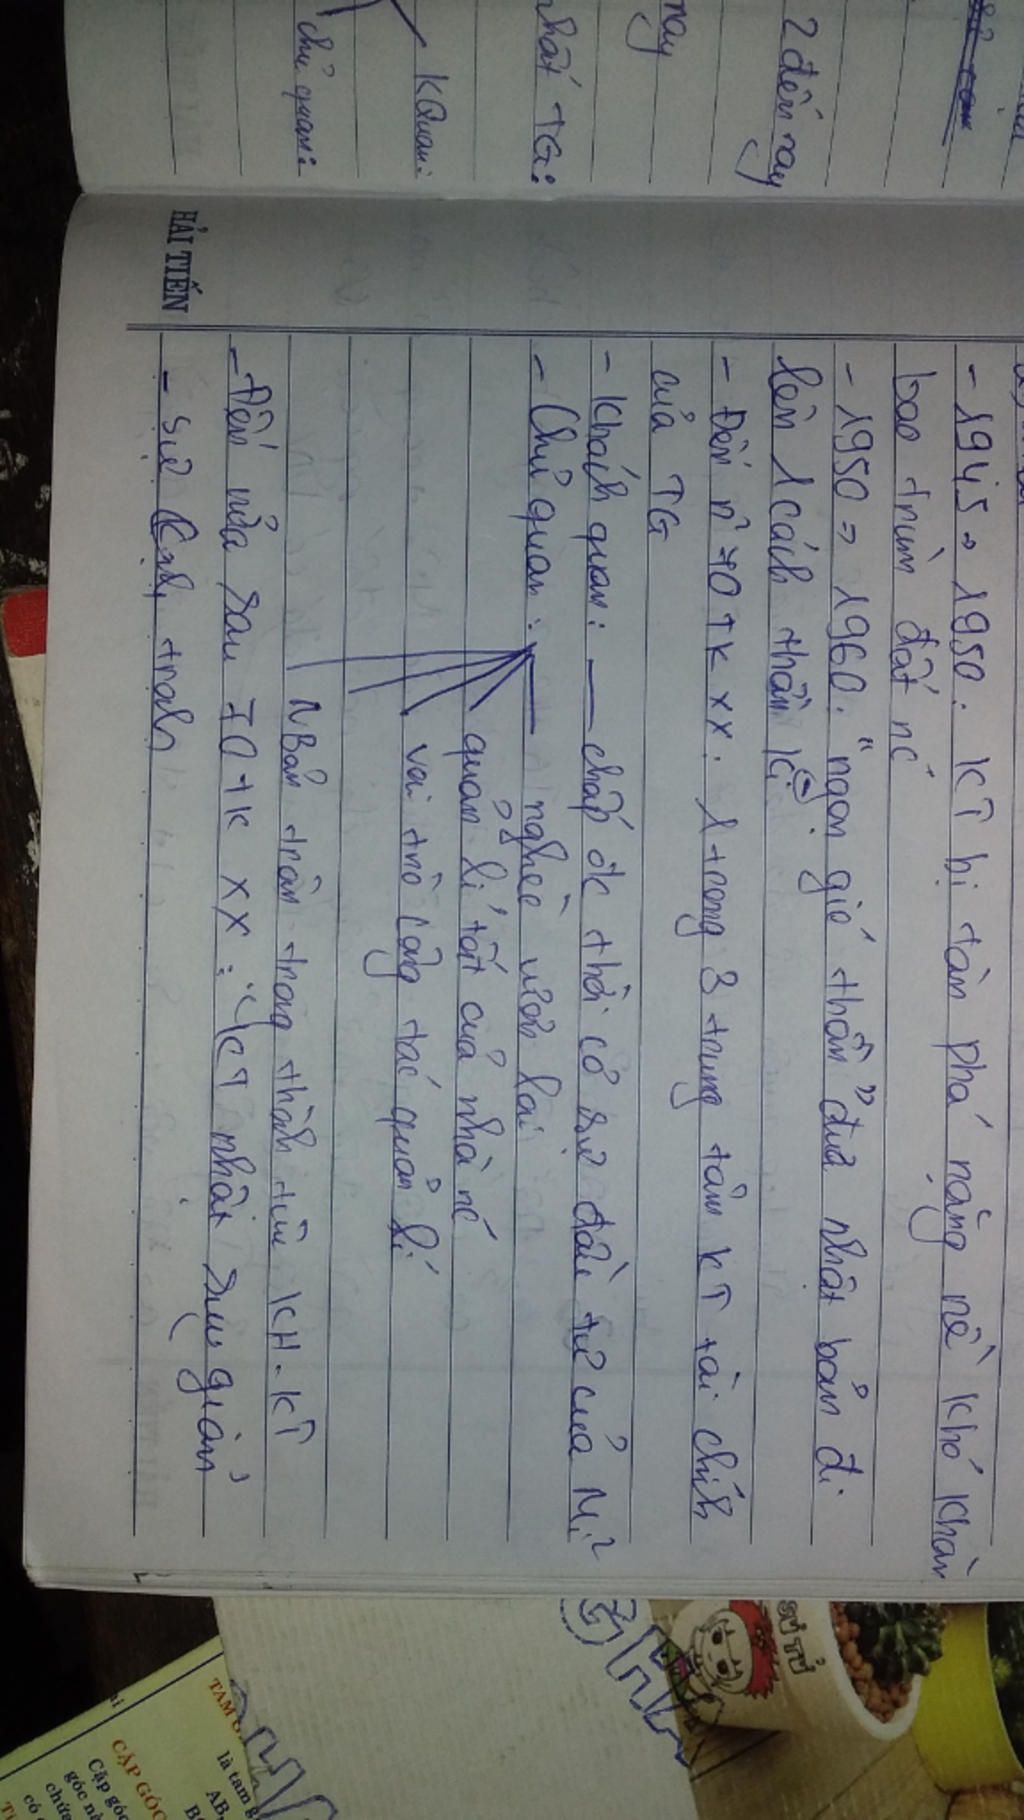 - 1945 => 1950: KT bị tàn phá nặng nề khó khăn
bao trùm đất nc
- 1950 => 1960: "ngọn gió thần" đưa nhật bản đi
lên 1 cách thần kì
- Đến n~ 70 TK XX: 1 trong 3 trung tâm KT tài chính
của TG
- Khách quan: — chớp đc thời cơ sự đầu tư của Mĩ
- Chủ quan: — nghèo vươn lại
quản lí tốt của nhà nc
vai trò công tác quản lí
NBản trân trọng thành tựu KH-KT
- Đến nửa sau 70 TK XX: KT nhật suy giảm
- Sự cạnh tranh
HẢI TIẾN
2 đến nay
nay
nhất TG:
KQuan:
chủ quan:
SƯ TỬ
CẶP GÓC
Cặp góc